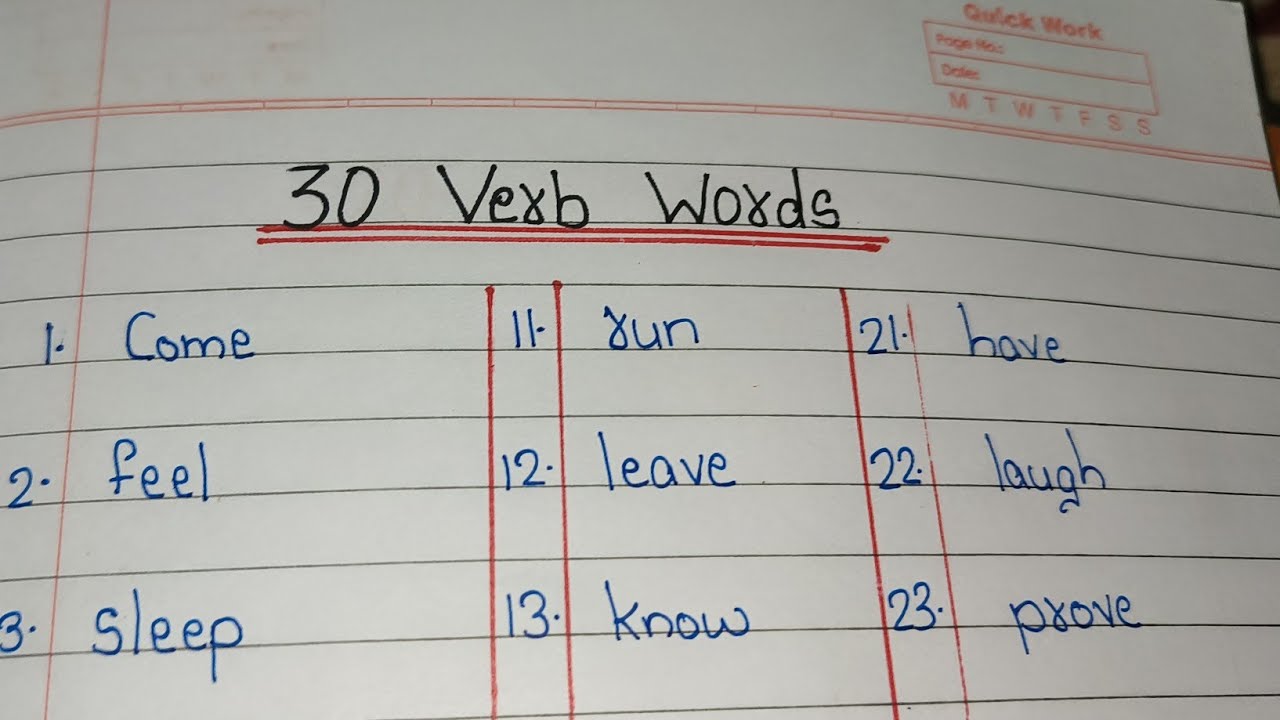 Quick Work
Page No.:
Date:
M T W T F S S
30 Verb Words
1. Come 11. run 21. have
2. feel 12. leave 22. laugh
3. Sleep 13. know 23. prove